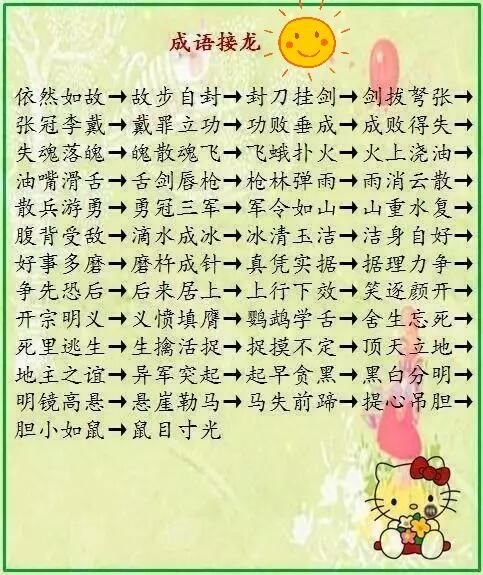 成语接龙
依然如故→故步自封→封刀挂剑→剑拔弩张→
张冠李戴→戴罪立功→功败垂成→成败得失→
失魂落魄→魄散魂飞→飞蛾扑火→火上浇油→
油嘴滑舌→舌剑唇枪→枪林弹雨→雨消云散→
散兵游勇→勇冠三军→军令如山→山重水复→
腹背受敌→滴水成冰→冰清玉洁→洁身自好→
好事多磨→磨杵成针→真凭实据→据理力争→
争先恐后→后来居上→上行下效→笑逐颜开→
开宗明义→义愤填膺→鹦鹉学舌→舍生忘死→
死里逃生→生擒活捉→捉摸不定→顶天立地→
地主之谊→异军突起→起早贪黑→黑白分明→
明镜高悬→悬崖勒马→马失前蹄→提心吊胆→
胆小如鼠→鼠目寸光